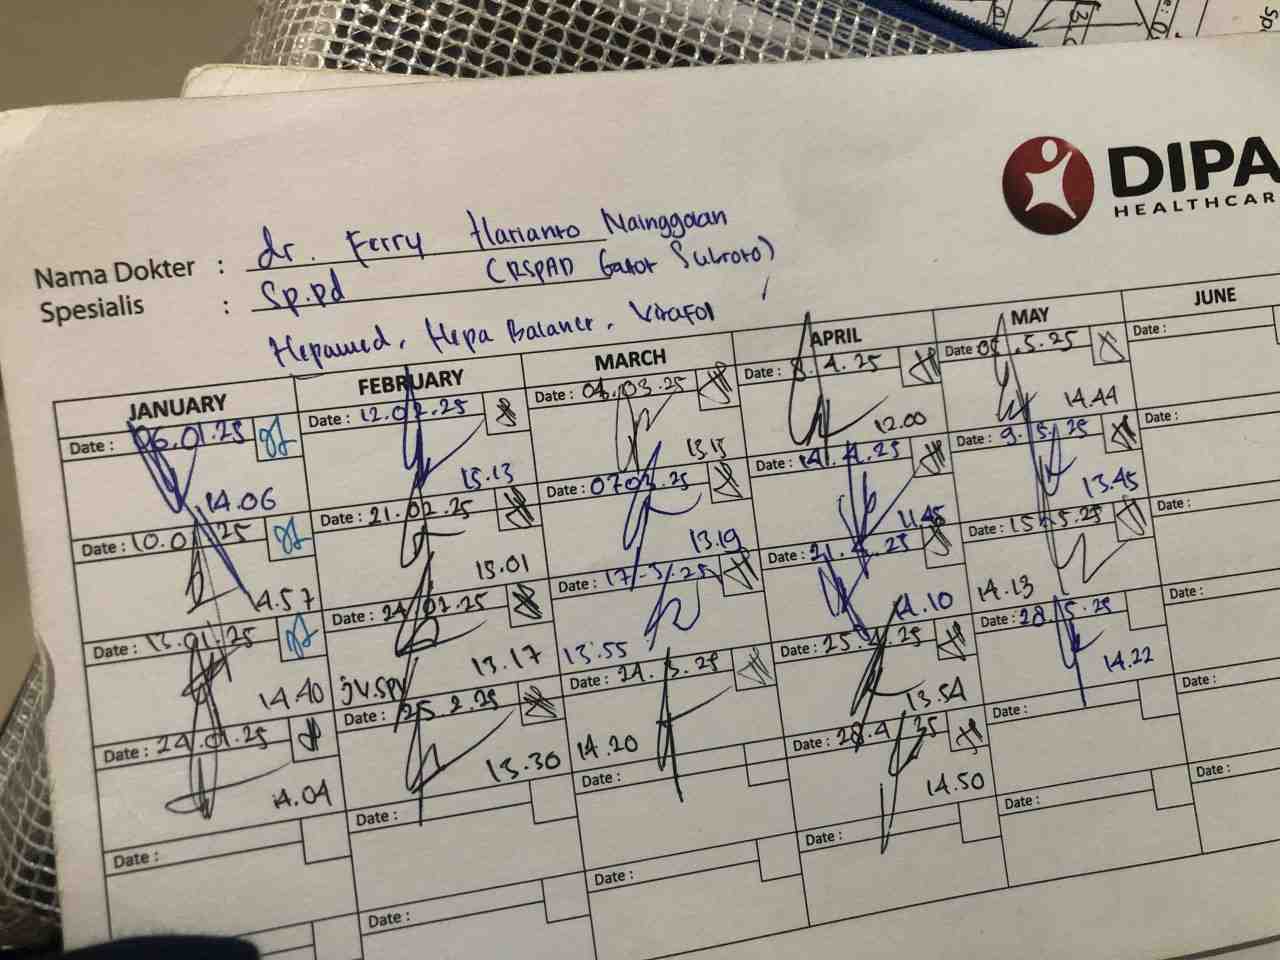 DIPA
HEALTHCAR
Nama Dokter : dr. Ferry Harianto Nainggolan
Spesialis : Sp.Pd (RSPAD Gatot Subroto)
Hepamed, Hepa Balance, Virafol
JANUARY
Date : 06.01.25
14.06
Date : 10.0 25
4.57
Date : 13.01.25
14.40
Date : 24.01.25
14.04
Date :
FEBRUARY
Date : 12.02.25
15.13
Date : 21.02.25
15.01
Date : 24/02.25
13.17
JV.SPV
Date : 25.2.25
13.30
Date :
Date :
MARCH
Date : 04.03.25
13.13
Date : 0703.25
13.19
Date : 17-3/25
13.55
Date : 24.3.25
14.20
Date :
Date :
APRIL
Date : 8.4.25
12.00
Date : 14.4.25
11.45
Date : 21.4.25
14.10
Date : 25.4.25
13.54
Date : 28.4 25
14.50
Date :
MAY
Date 05.5.25
14.44
Date : 9.5.25
13.45
Date : 15.5.25
14.13
Date : 28.5.25
14.22
Date :
Date :
JUNE
Date :
Date :
Date :
Date :
Date :